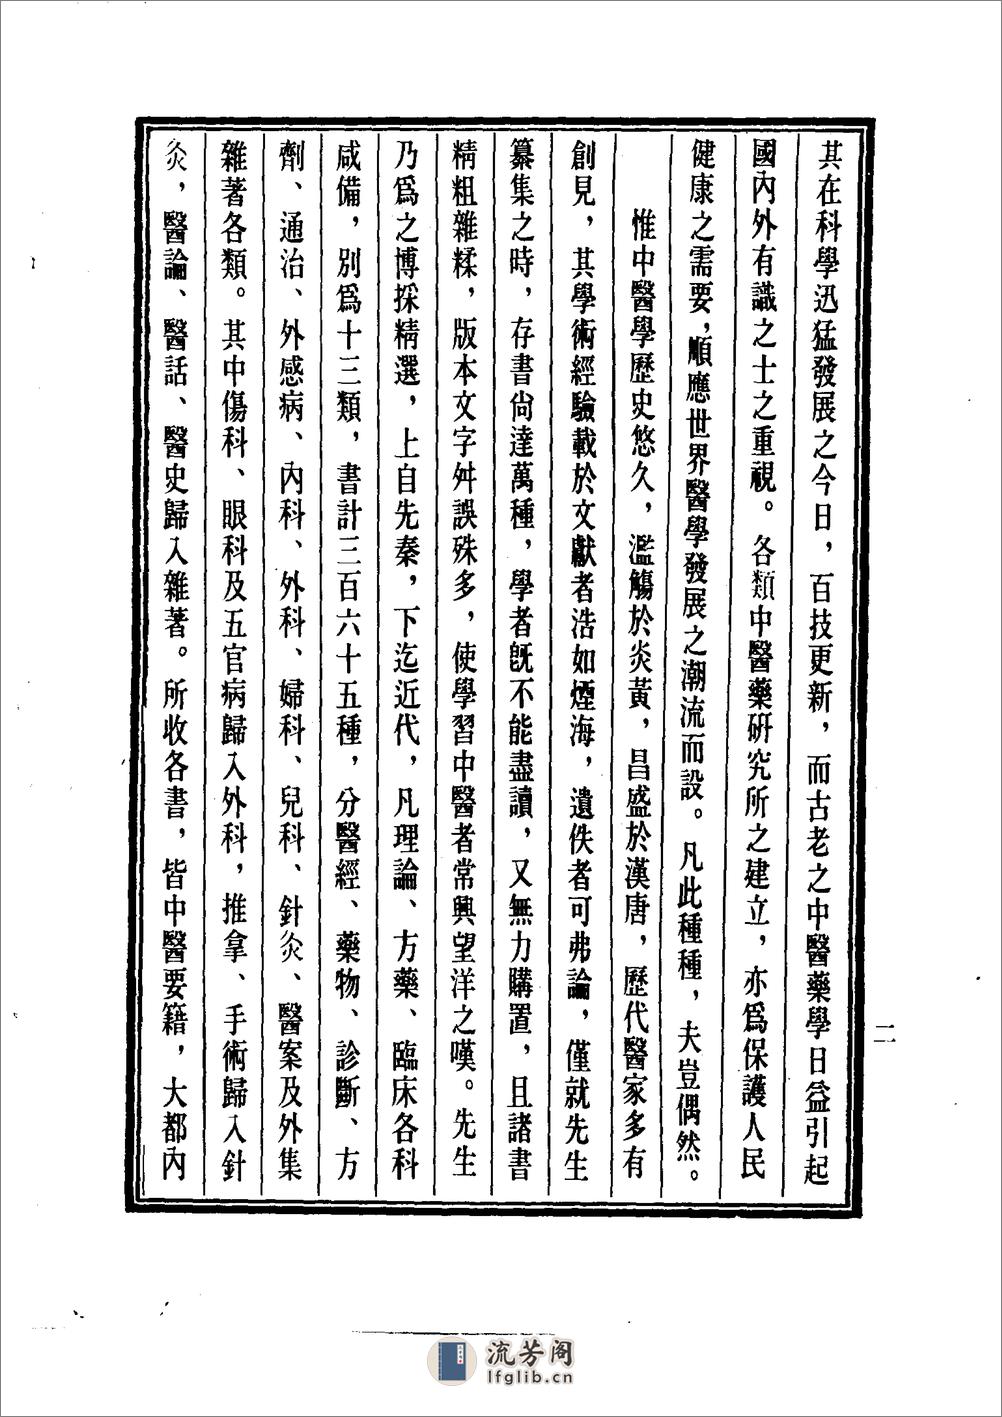 其在科學迅猛發展之今日，百技更新，而古老之中醫藥學日益引起
國內外有識之士之重視。各類中醫藥研究所之建立，亦爲保護人民
健康之需要，順應世界醫學發展之潮流而設。凡此種種，夫豈偶然。
惟中醫學歷史悠久，濫觴於炎黃，昌盛於漢唐，歷代醫家多有
創見，其學術經驗載於文獻者浩如煙海，遺佚者可弗論，僅就先生
纂集之時，存書尙達萬種，學者旣不能盡讀，又無力購置，且諸書
精粗雜糅，版本文字舛誤殊多，使學習中醫者常興望洋之嘆。先生
乃爲之博採精選，上自先秦，下迄近代，凡理論、方藥、臨床各科
咸備，別爲十三類，書計三百六十五種，分醫經、藥物、診斷、方
劑、通治、外感病、內科、外科、婦科、兒科、針灸、醫案及外集
雜著各類。其中傷科、眼科及五官病歸入外科，推拿、手術歸入針
灸，醫論、醫話、醫史歸入雜著。所收各書，皆中醫要籍，大都內
二
流芳阁
lfglib.cn